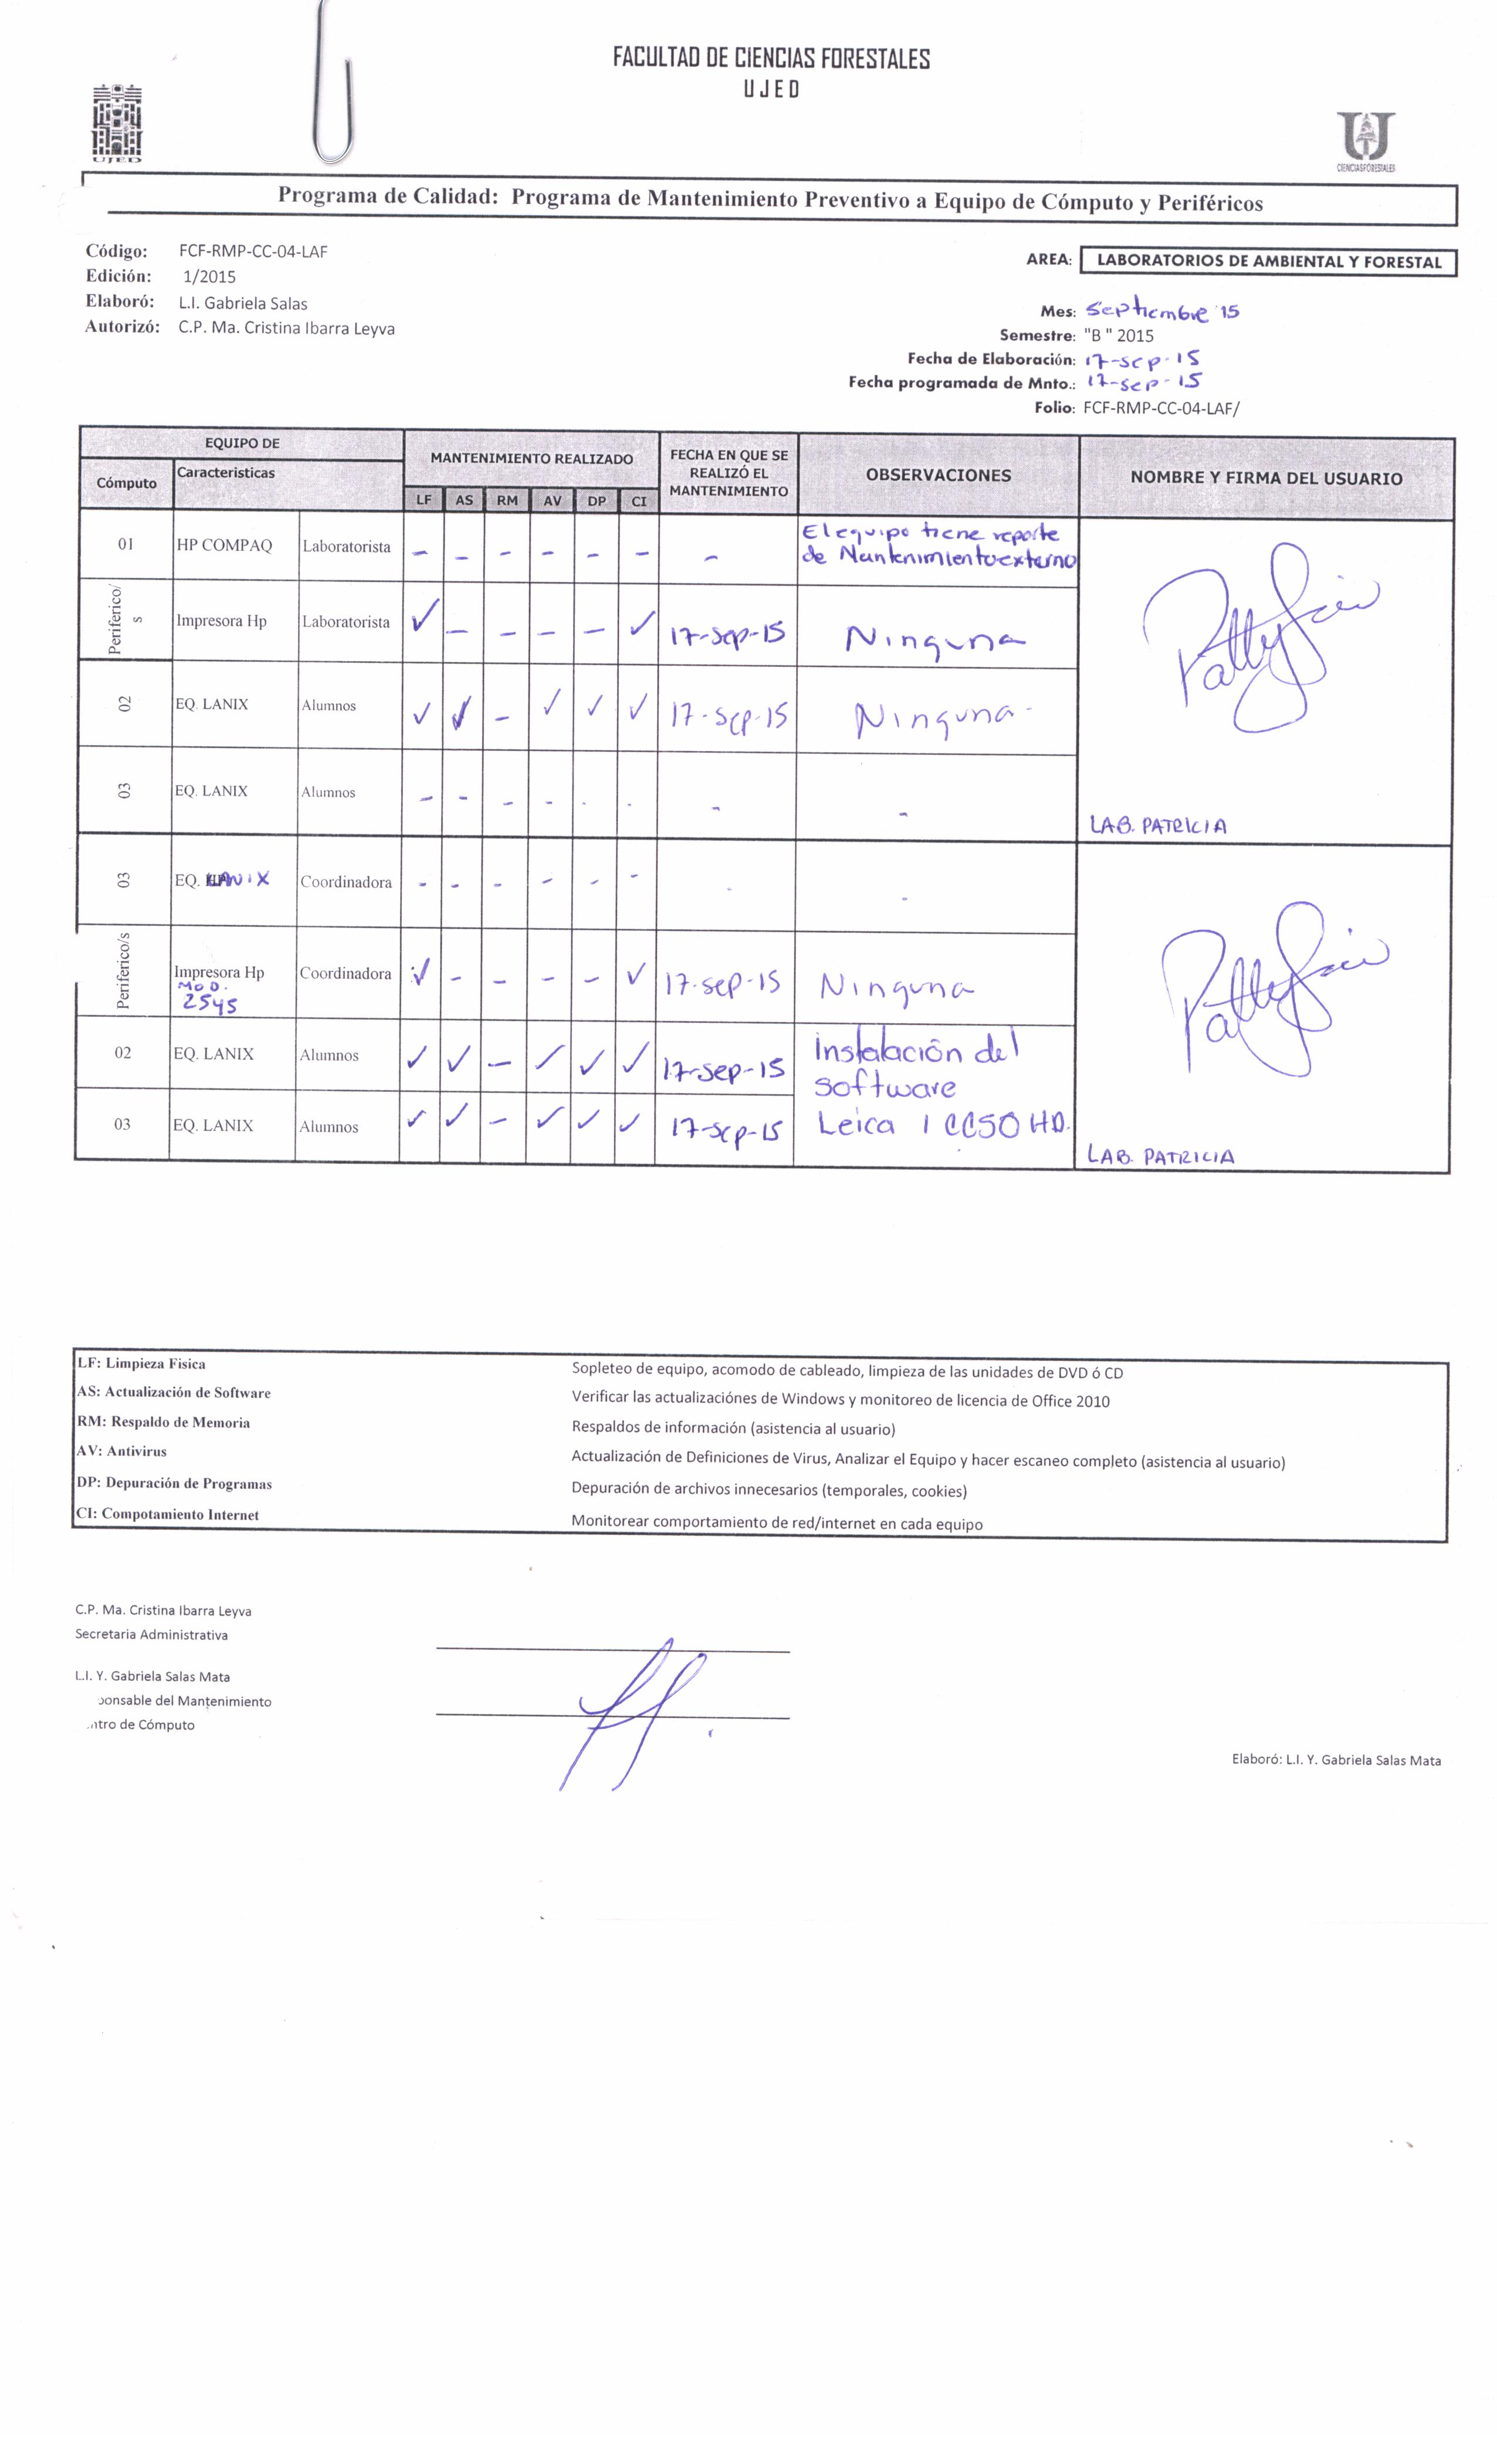 FACULTAD DE CIENCIAS FORESTALES
UJED
UJED
CIENCIAS FORESTALES
Programa de Calidad: Programa de Mantenimiento Preventivo a Equipo de Cómputo y Periféricos
Código: FCF-RMP-CC-04-LAF
Edición: 1/2015
Elaboró: L.I. Gabriela Salas
Autorizó: C.P. Ma. Cristina Ibarra Leyva
AREA: LABORATORIOS DE AMBIENTAL Y FORESTAL
Mes: Septiembre '15
Semestre: "B " 2015
Fecha de Elaboración: 17-sep-15
Fecha programada de Mnto.: 17-sep-15
Folio: FCF-RMP-CC-04-LAF/
EQUIPO DE
Cómputo Caracteristicas
MANTENIMIENTO REALIZADO
LF AS RM AV DP CI
FECHA EN QUE SE
REALIZÓ EL
MANTENIMIENTO
OBSERVACIONES
NOMBRE Y FIRMA DEL USUARIO
01 HP COMPAQ Laboratorista - - - - - - -
El equipo tiene reporte
de Mantenimiento externo
Periferico/
s
Impresora Hp Laboratorista ✓ - - - - ✓ 17-sep-15 Ninguna
02 EQ. LANIX Alumnos ✓ ✓ - ✓ ✓ ✓ 17-sep-15 Ninguna-
03 EQ. LANIX Alumnos - - - - - - - -
LAB. PATRICIA
03 EQ. LANIX Coordinadora - - - - - - - -
Periferico/s
Impresora Hp Coordinadora ✓ - - - - ✓ 17-sep-15 Ninguna
MOD.
2545
02 EQ. LANIX Alumnos ✓ ✓ - ✓ ✓ ✓ 17-sep-15
Instalación del
software
03 EQ. LANIX Alumnos ✓ ✓ - ✓ ✓ ✓ 17-sep-15
Leica ICC50 HD.
LAB. PATRICIA
LF: Limpieza Fisica Sopleteo de equipo, acomodo de cableado, limpieza de las unidades de DVD ó CD
AS: Actualización de Software Verificar las actualizaciónes de Windows y monitoreo de licencia de Office 2010
RM: Respaldo de Memoria Respaldos de información (asistencia al usuario)
AV: Antivirus Actualización de Definiciones de Virus, Analizar el Equipo y hacer escaneo completo (asistencia al usuario)
DP: Depuración de Programas Depuración de archivos innecesarios (temporales, cookies)
CI: Compotamiento Internet Monitorear comportamiento de red/internet en cada equipo
C.P. Ma. Cristina Ibarra Leyva
Secretaria Administrativa
L.I. Y. Gabriela Salas Mata
ponsable del Mantenimiento
ntro de Cómputo
Elaboró: L.I. Y. Gabriela Salas Mata